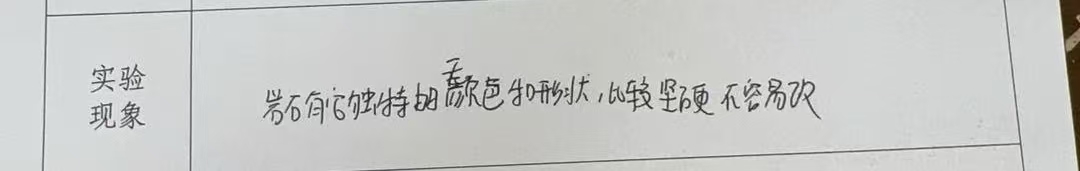 实验
现象
岩石有它独特的颜色和形状,比较坚硬不容易改